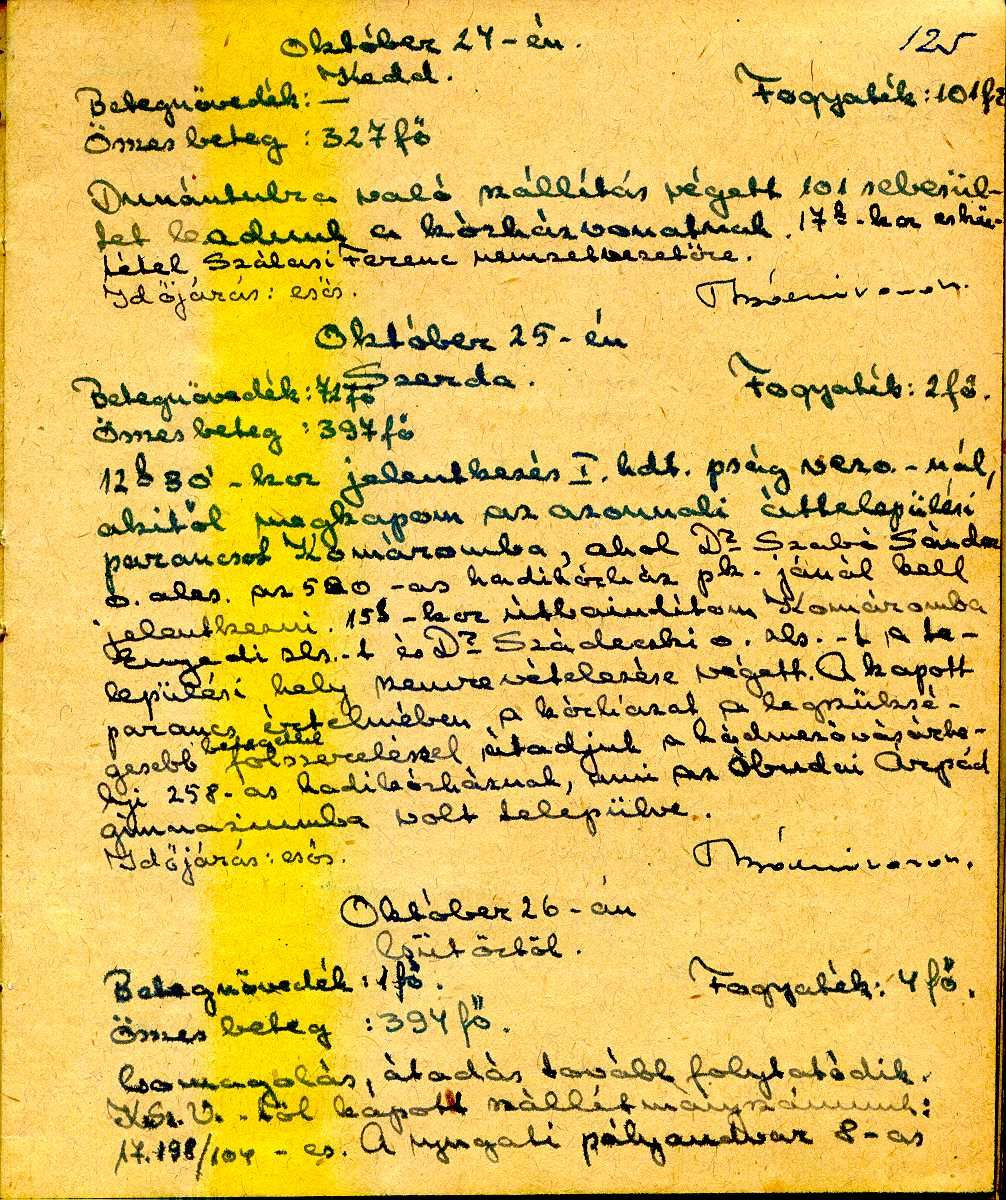 125
Október 24-én.
Kedd.
Betegnövedék: — Fogyaték: 101 fő
Összes beteg : 327 fő
Dunántulra való szállítás végett 101 sebesül-
tet leadunk a kórházvonatnak. 17h-kor eskü-
tétel Szálasi Ferenc nemzetvezetőre.
Időjárás: esős.
Október 25-én
Szerda.
Betegnövedék: 72 fő Fogyaték: 2 fő.
Összes beteg : 397 fő
12h 30'-kor jelentkezés I. hdt. pság vezo.-nál,
akitől megkapom az azonnali áttelepülési
parancsot Komáromba, ahol Dr Szabó Sándor
o. ales. az 520-as hadikórház pk.-jánál kell
jelentkezni. 15h-kor útbaindítom Komáromba
Enyedi zls.-t és Dr Szádecski o. zls.-t a te-
lepülési hely szemrevételezése végett. A kapott
parancs értelmében a kórházat a legszüksé-
gesebb betegekkel fölszereléssel átadjuk a hódmezővásárhe-
lyi 258-as hadikórháznak, ami az Óbudai Árpád
gimnáziumba volt települve.
Időjárás: esős.
Október 26-án
Csütörtök.
Betegnövedék: 1 fő. Fogyaték: 4 fő.
Összes beteg : 394 fő.
Csomagolás, átadás tovább folytatódik.
K.Sz.V.-től kapott szállítmányszámunk:
17.198/104-es. A nyugati pályaudvar 8-as